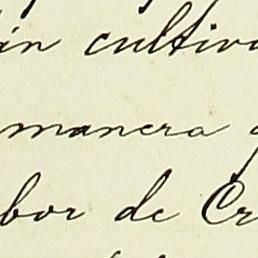 án cultiva
manera
bor de Cr